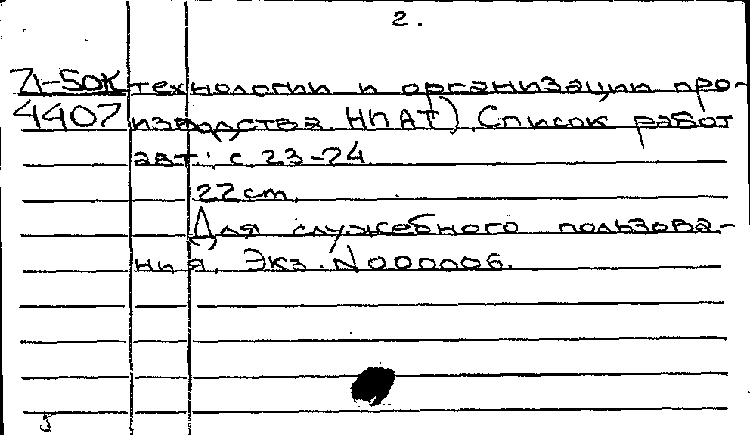 2.
Д-50К технологии и организации про-
4407 изводства НПАТ). Список работ
авт.: с. 23-24
22 cm.
Для служебного пользова-
ния. Экз. N000006.